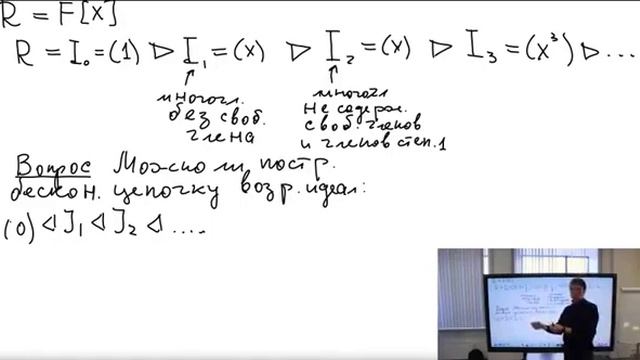 R = F[x]
R = I₀ = (1) ▷ I₁ = (x) ▷ I₂ = (x) ▷ I₃ = (x³) ▷ ...
многоч. без своб. члена
многочл не содерж. своб. членов и членов степ. 1
Вопрос Можно ли постр.
бескон. цепочку возр. идеал:
(0) ◁ J₁ ◁ J₂ ◁ ....